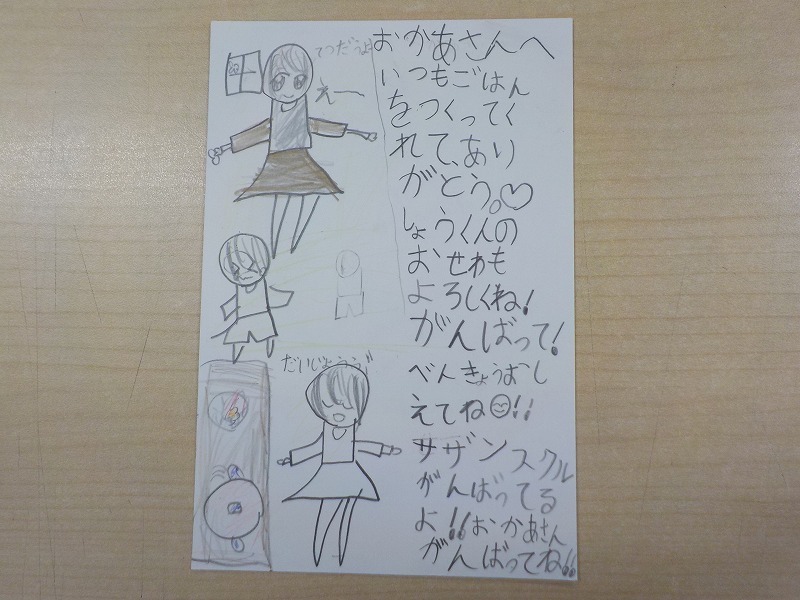 おかあさんへ
いつもごはん
をつくってく
れて、あり
がとう。♡
しょうくんの
おせわも
よろしくね!
がんばって!
べんきょうおし
えてね😊!!
サザンスクル
がんばってる
よ!!おかあさん
がんばってね!!
てつだうよ
えー
だいじょうぶ